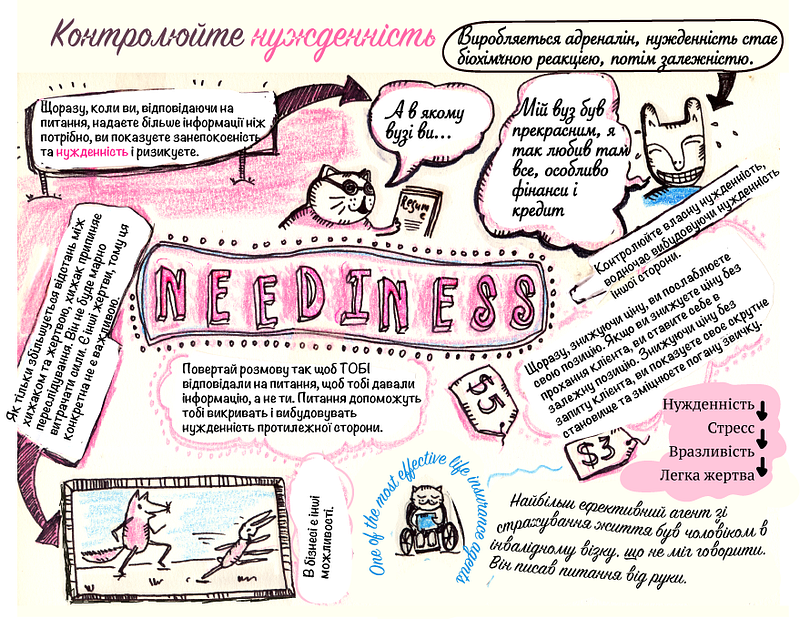 Контролюйте нужденність
Виробляється адреналін, нужденність стає
біохімічною реакцією, потім залежністю.
Щоразу, коли ви, відповідаючи на
питання, надаєте більше інформації ніж
потрібно, ви показуєте занепокоєність
та нужденність і ризикуєте.
А в якому
вузі ви...
Resum
e
Мій вуз був
прекрасним, я
так любив там
все, особливо
фінанси і
кредит
Контролюйте власну нужденність,
водночас вибудовуючи нужденність
іншої сторони.
NEEDINESS
Як тільки збільшується відстань між
хижаком та жертвою, хижак припиняє
переслідування. Він не буде марно
витрачати сили. Є інші жертви, тому ця
конкретна не є важливою.
Повертай розмову так щоб ТОБІ
відповідали на питання, щоб тобі давали
інформацію, а не ти. Питання допоможуть
тобі викривати і вибудовувати
нужденність протилежної сторони.
Щоразу, знижуючи ціну, ви послаблюєте
свою позицію. Якщо ви знижуєте ціну без
прохання клієнта, ви ставите себе в
залежну позицію. Знижуючи ціну без
запиту клієнта, ви показуєте своє скрутне
становище та зміцнюєте погану звичку.
$5
$3
Нужденність
Стресс
Вразливість
Легка жертва
В бізнесі є інші
можливості.
One of the most effective life insurance agents
Найбільш ефективний агент зі
страхування життя був чоловіком в
інвалідному візку. що не міг говорити.
Він писав питання від руки.